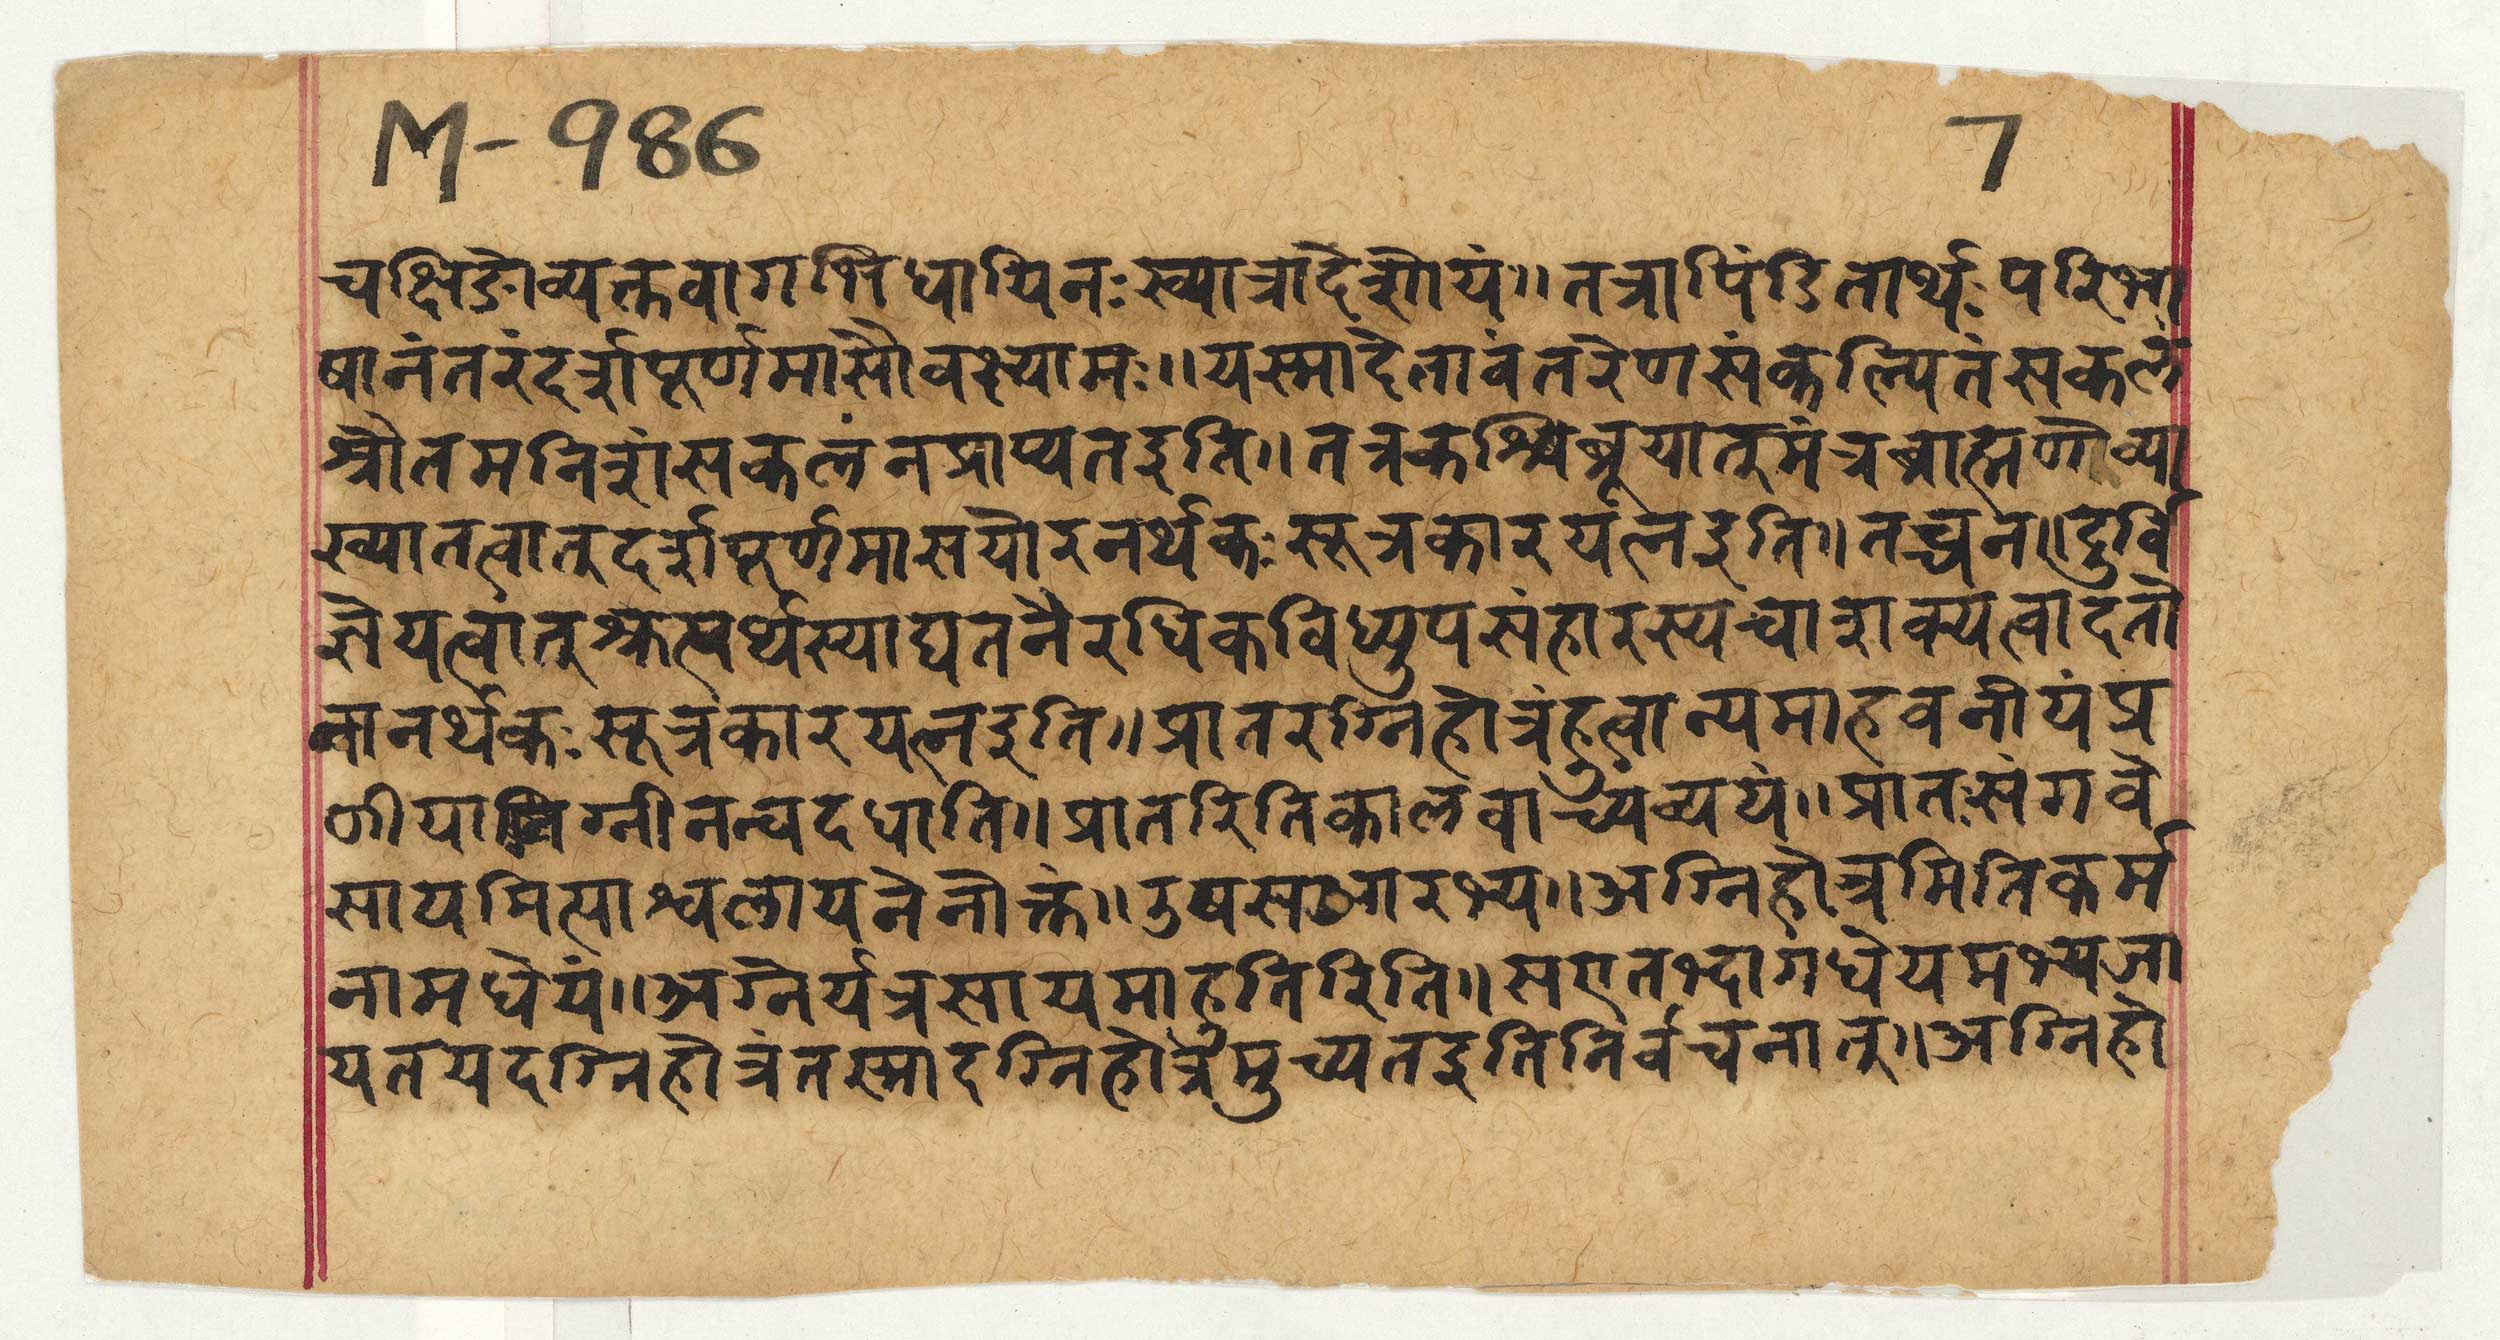 M-986 7
चक्षिङोव्यक्तवागभिधायिनःख्यात्रादेशोयं॥तत्रापिंडितार्थःपरिभा
षानंतरंदर्शपूर्णमासौवक्ष्यामः॥यस्मादेतावंतरेणसंकल्पितंसकलं
श्रौतमनिशंसकलंनप्राप्यतइति॥तत्रकश्चिब्रूयात्मंत्रब्राह्मणोव्या
ख्यातत्वात्दर्शपूर्णमासयोरनर्थकःसूत्रकारयत्नइति॥तच्चन॥दुर्वि
ज्ञेयत्वात्श्रुत्यर्थस्याद्यतनैरधिकविध्युपसंहारस्यचाशक्यत्वादतो
नानर्थकःसूत्रकारयत्नइति॥प्रातरग्निहोत्रंहुत्वान्यमाहवनीयंप्र
णीया ग्नीनन्वदधाति॥प्रातरितिकालवाच्यंव्ययं॥प्रातःसंगवे
सायमित्याश्वलायनेनोक्तं॥उषसआरभ्य॥अग्निहोत्रमितिकर्म
नामधेयं॥अग्नेर्यत्रसायमाहुतिरिति॥सएतभ्दागधेयमभ्यजा
यतयदग्निहोत्रंतस्मादग्निहोत्रमुच्यतइतिनिर्वचनात्॥अग्निहो